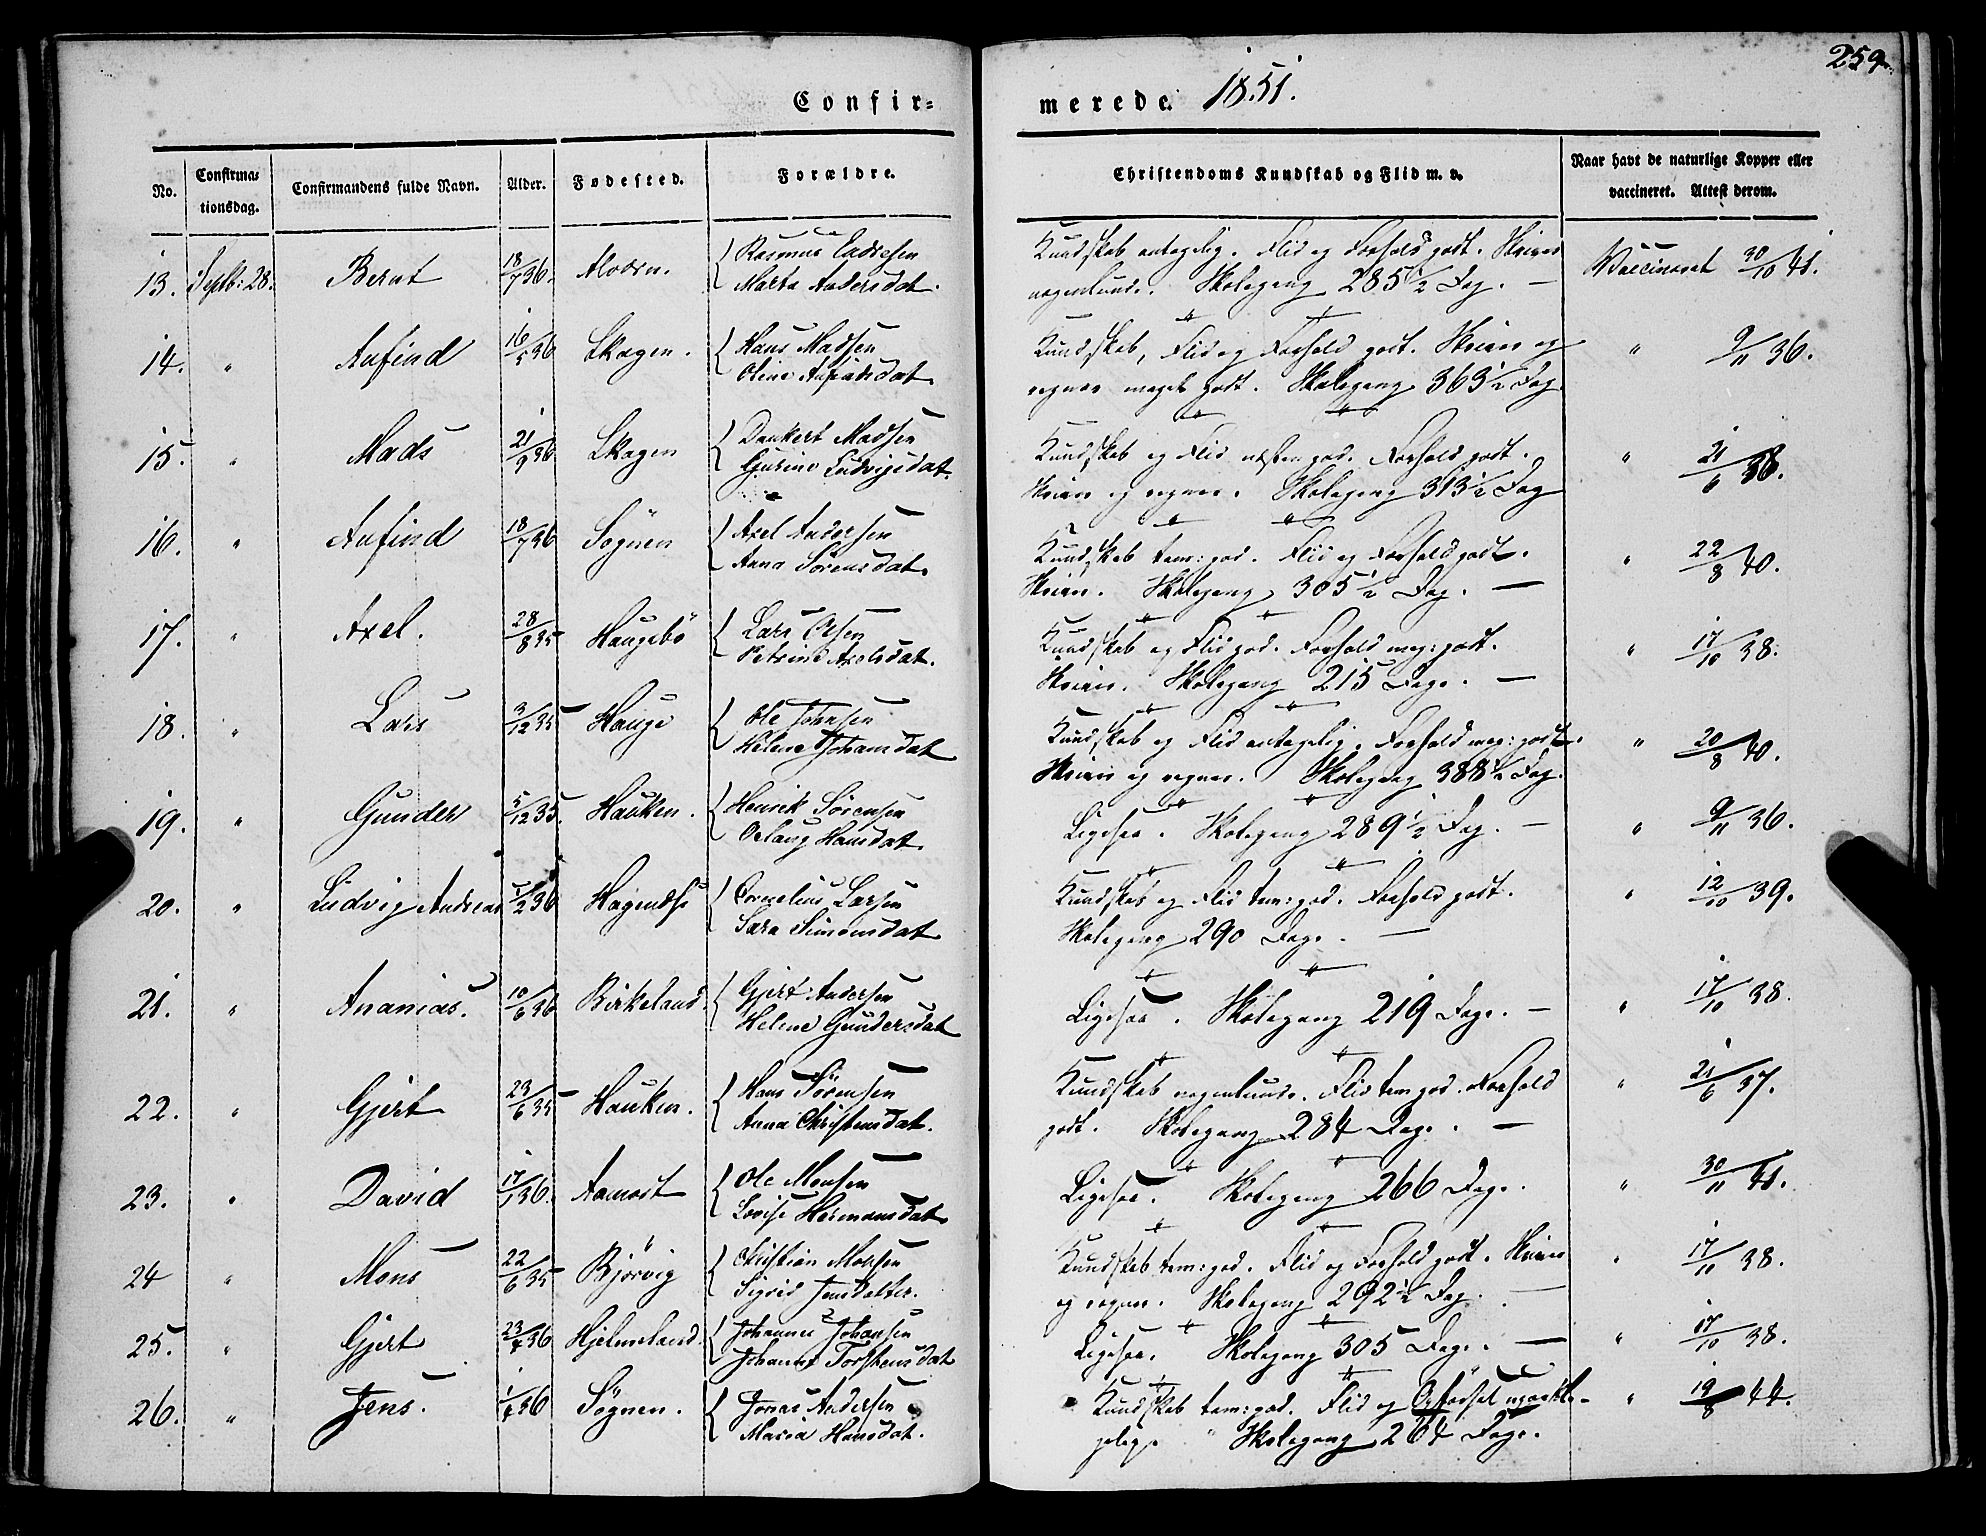 259
Confir=
merede. 1851.
No.
Confirma=
tionsdag.
Confirmandens fulde Navn.
Alder.
Fødested.
Forældre.
Christendoms Kundskab og Flid m. v.
Naar havt de naturlige Kopper eller
vaccineret. Attest derom.
13. Septb: 28. Bernt 18/7 36. { Rasmus
Marta Andersdat.
Kundskab antagelig. Flid og Forhold godt. Skriver
nogenlunde. Skolegang 285 1/2 Dag. —
Vaccineret 30/10 41.
14. " Anfind 16/5 36 Skagen. { Hans Madsen
Oline Anfindsdat.
Kundskab, Flid og Forhold godt. Skriver og
regner meget godt. Skolegang 363 1/2 Dag
" 9/11 36.
15. " Mads 21/9 36 Skagen { Dankert Madsen
Gjurine Ludvigsdat.
Kundskab og Flid næsten god. Forhold godt.
Skriver og regner. Skolegang 313 1/2 Dag
" 21/6 38.
16. " Anfind 18/7 36 Sögnen { Axel Andersen
Anna Sörensdat.
Kundskab tem: god. Flid og Forhold godt.
Skriver. Skolegang 305 1/2 Dag. —
" 22/8 40.
17. " Axel. 28/8 35 Haugebö { Lars Olsen
Petrine Axelsdat.
Kundskab og Flid god. Forhold meg: godt.
Skriver. Skolegang 215 Dage. —
" 17/10 38.
18. " Lars 3/12 35 Hauge { Ole Johnsen
Helene Johansdat
Kundskab og Flid antagelig. Forhold meg: godt.
Skriver og regner. Skolegang 388 1/2 Dag.
" 20/8 40.
19. " Gunder 5/12 35. Hauken. { Henrik Sörensen
Hansdat.
Ligesaa. Skolegang 289 1/2 Dag. —
" 9/11 36.
20. " Ludvig Andreas { Cornelius Larsen
Sara Simonsdat.
Kundskab og Flid tem: god. Forhold godt.
Skolegang 290 Dage. —
" 12/10 39.
21. " Ananias. 10/6 36 Birkeland. { Gjert Andersen
Helene Gundersdat
Ligesaa. Skolegang 219 Dage. —
" 17/10 38.
22. " Gjert 23/6 35 Hauken. { Hans Sörensen
Anna Christensdat.
Kundskab nogenlunde. Flid tem: god. Forhold
godt. Skolegang 284 Dage. —
" 21/6 37.
23. " David 17/1 36. Aamodt { Ole Monsen
Lovise Hermansdat.
Ligesaa. Skolegang 266 Dage.
" 30/11 41.
24 " Mons 22/6 35 Björvig { Christian Monsen
Sigrid Jensdatter.
Kundskab tem: god. Flid og Forhold godt. Skriver
og regner. Skolegang 292 1/2 Dag. —
" 17/10 38.
25. " Gjert 23/4 36 Hjelmeland. { Johannes Johansen
Johanne Torstensdat
Ligesaa. Skolegang 305 Dage. —
" 17/10 38.
26. " Jens. 1/4 36 Sögnen. { Jonas Andersen
Maria Hansdat.
Kundskab tem: god. Flid og Opførsel upaakla-
gelig. Skolegang 264 Dage.
" 19/8 44.